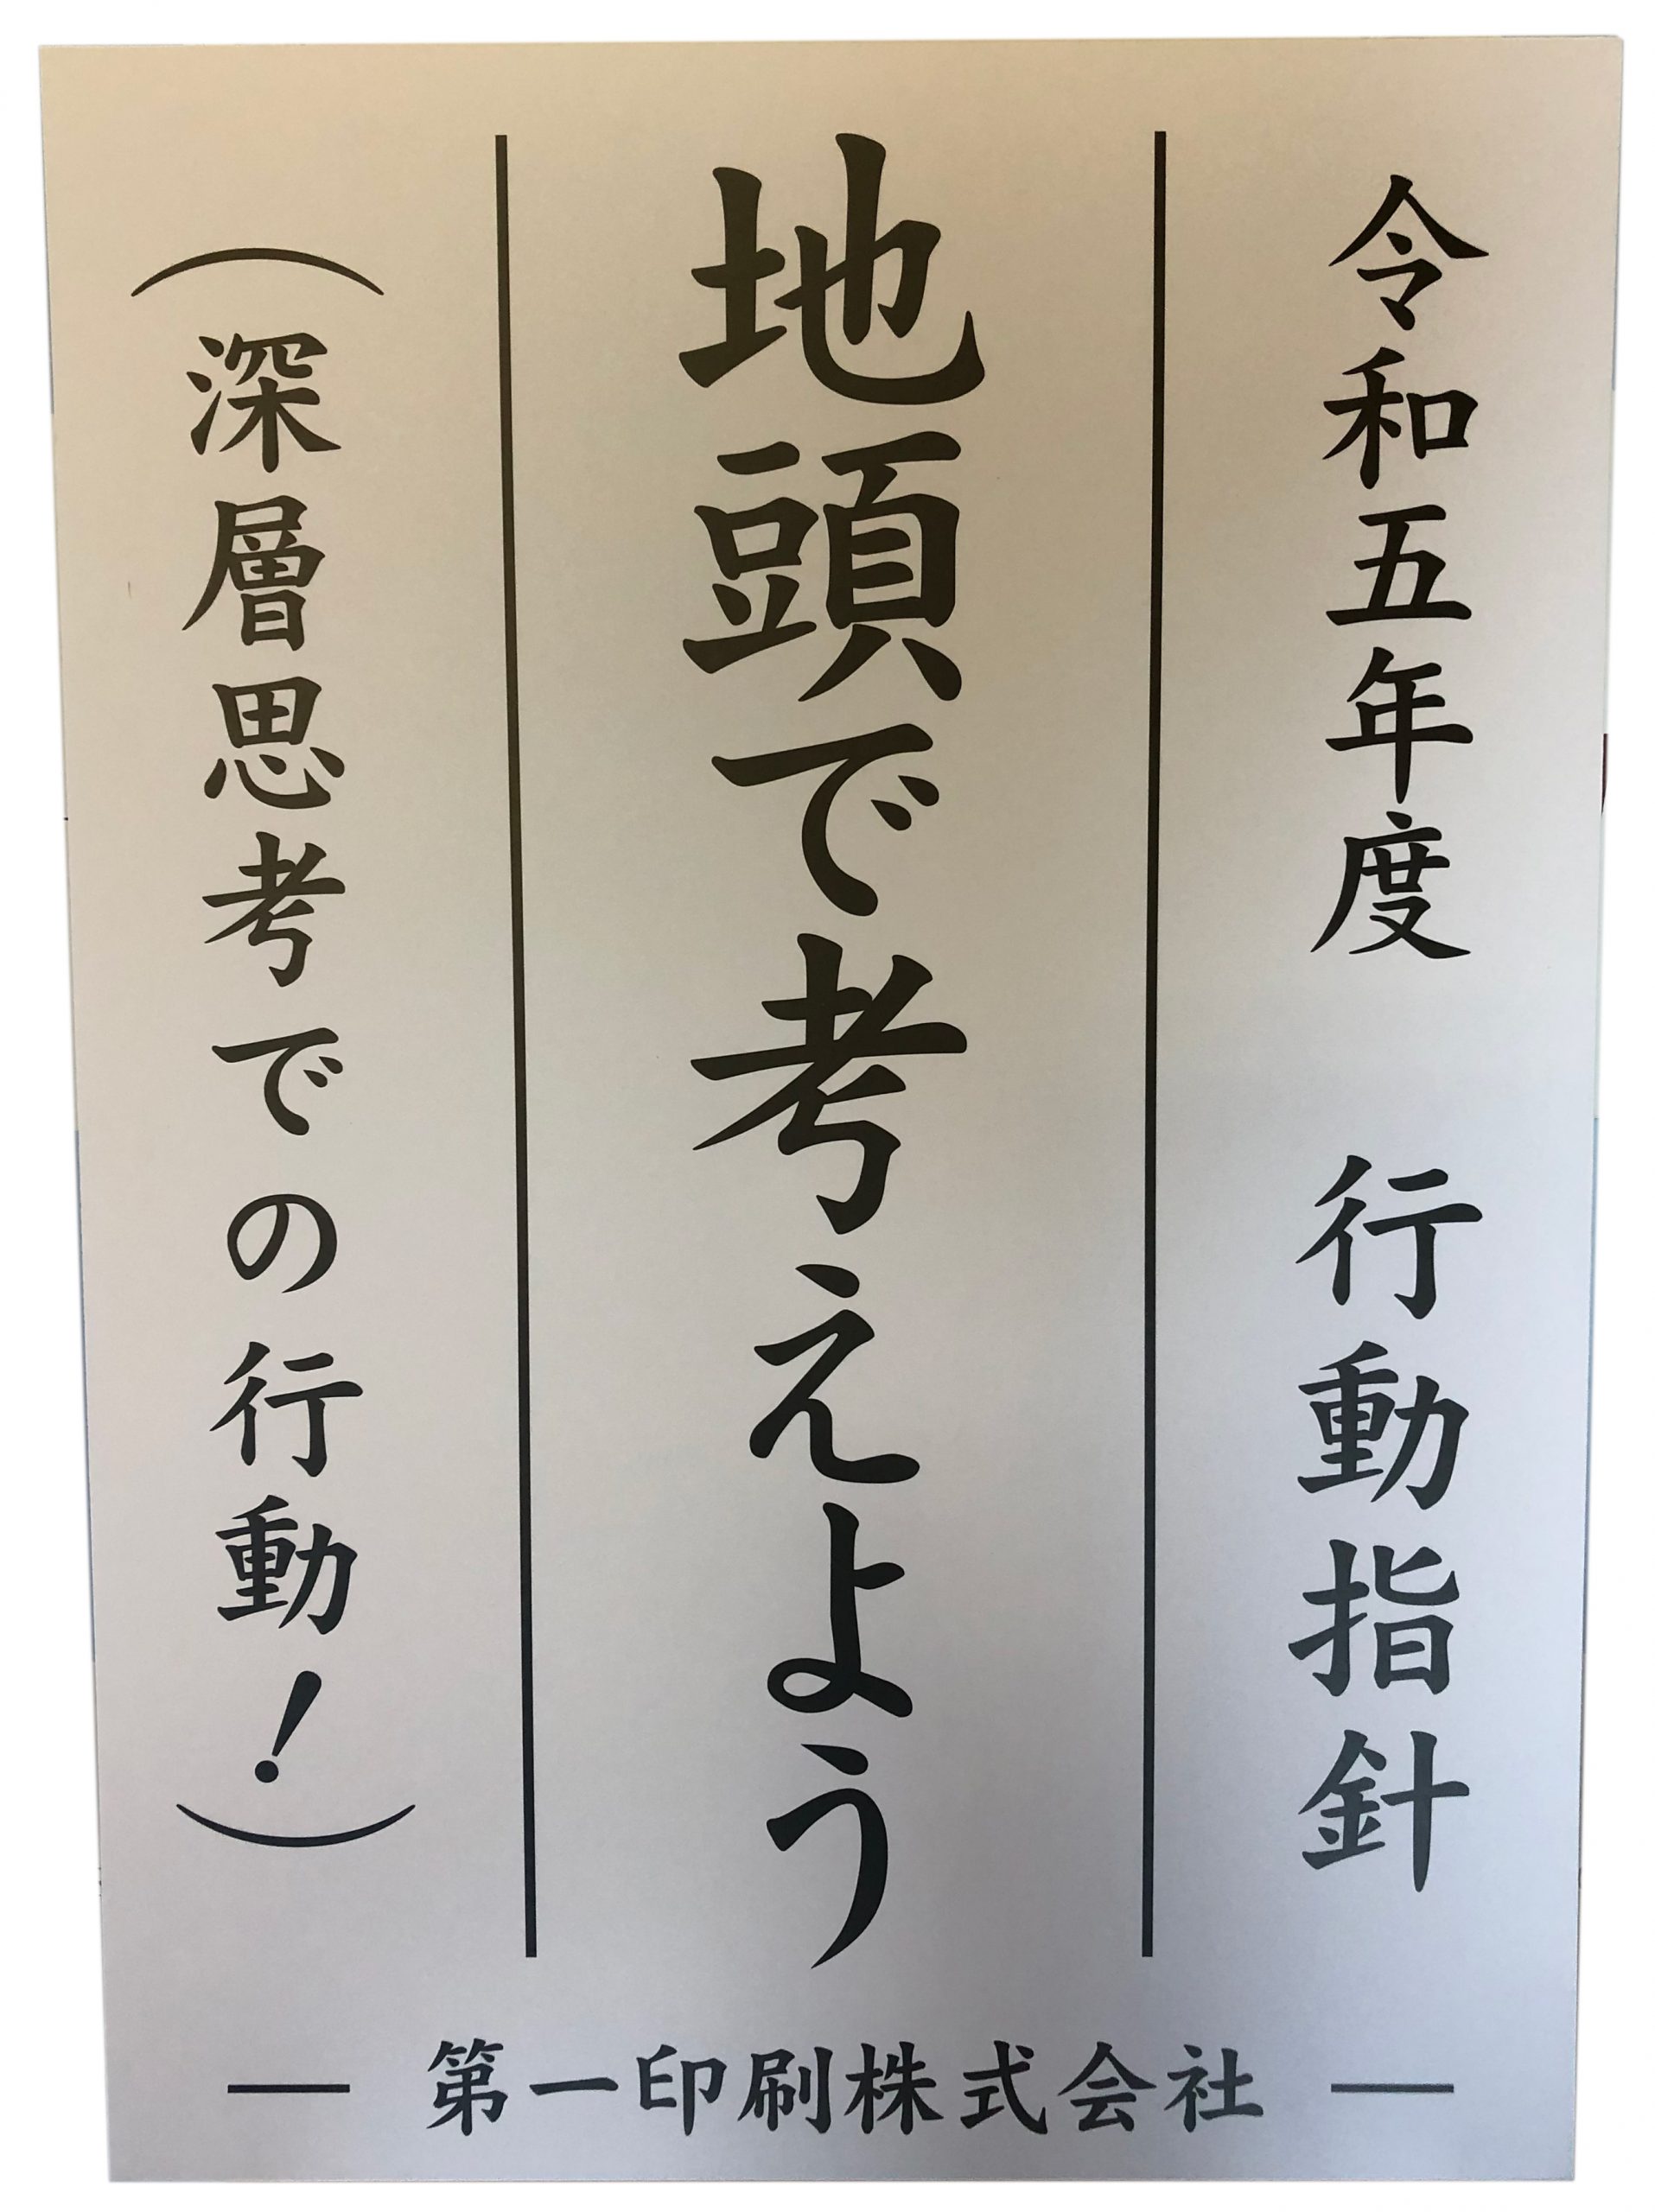 令和五年度　行動指針
地頭で考えよう
（深層思考での行動！）
― 第一印刷株式会社 ―